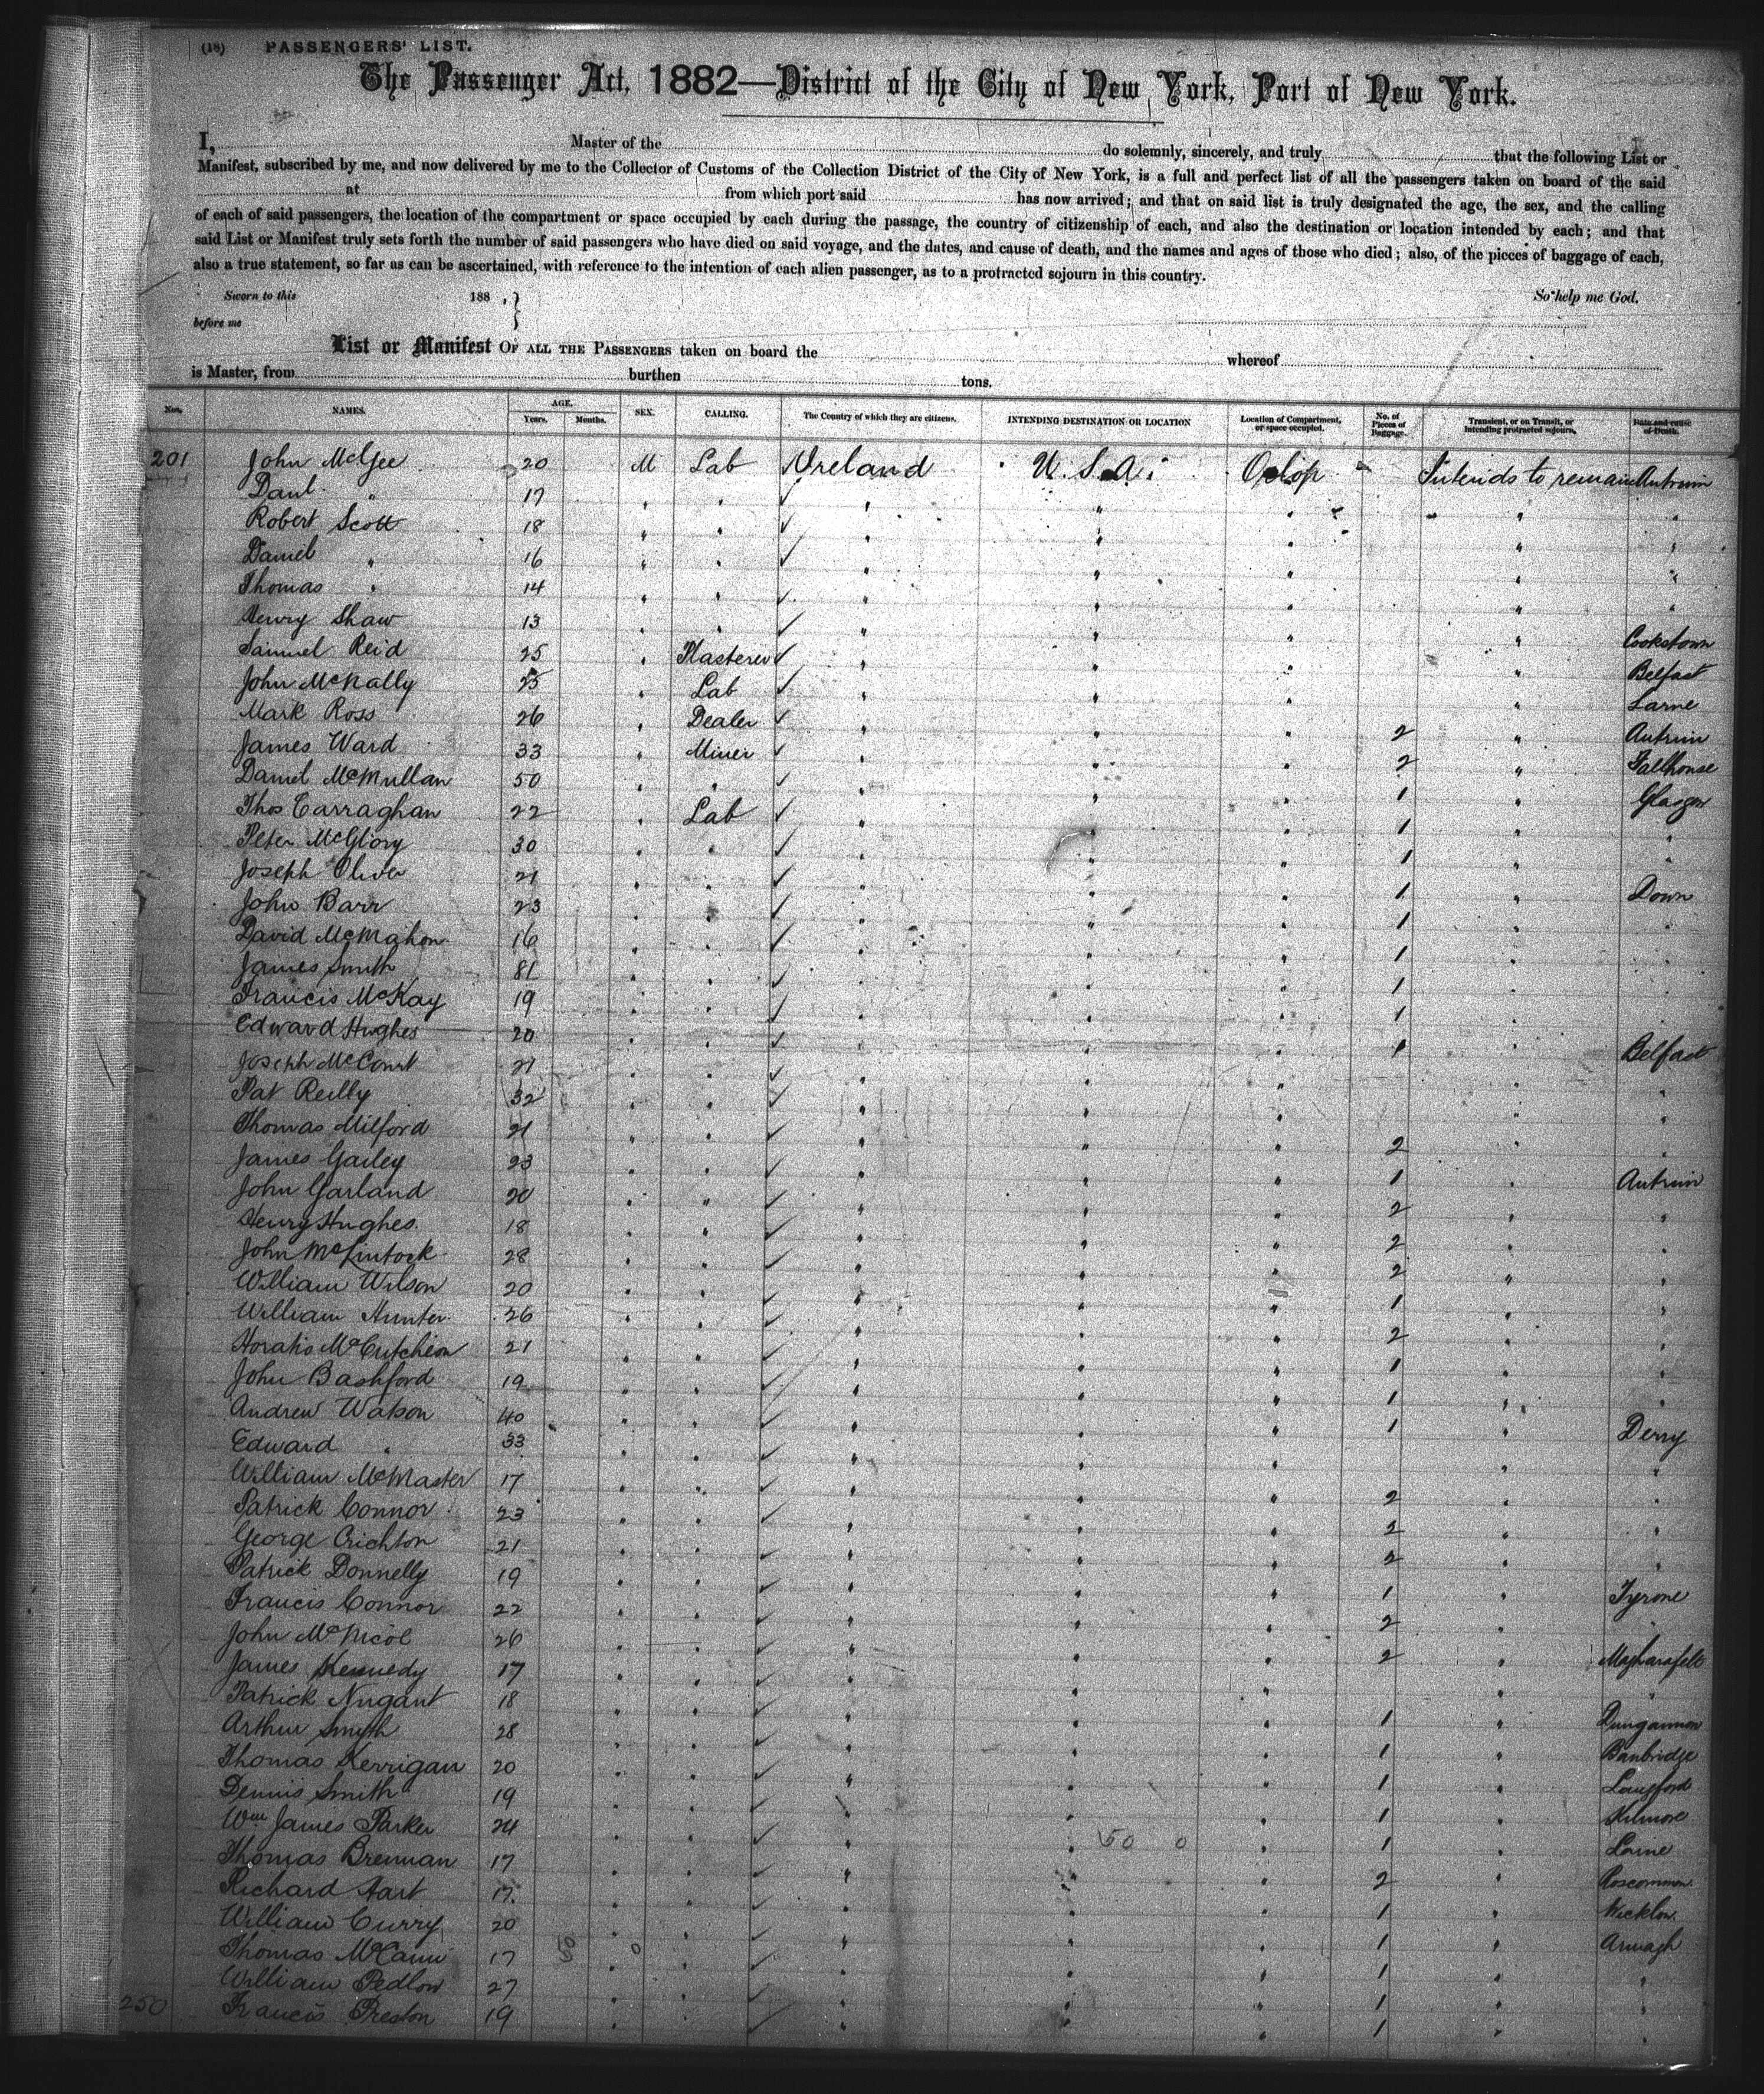 (18) PASSENGERS' LIST.
The Passenger Act, 1882—District of the City of New York, Port of New York.
I, Master of the do solemnly, sincerely, and truly that the following List or
Manifest, subscribed by me, and now delivered by me to the Collector of Customs of the Collection District of the City of New York, is a full and perfect list of all the passengers taken on board of the said
at from which port said has now arrived; and that on said list is truly designated the age, the sex, and the calling
of each of said passengers, the location of the compartment or space occupied by each during the passage, the country of citizenship of each, and also the destination or location intended by each; and that
said List or Manifest truly sets forth the number of said passengers who have died on said voyage, and the dates, and cause of death, and the names and ages of those who died; also, of the pieces of baggage of each,
also a true statement, so far as can be ascertained, with reference to the intention of each alien passenger, as to a protracted sojourn in this country.
Sworn to this 188 , } So help me God.
before me
List or Manifest OF ALL THE PASSENGERS taken on board the whereof
is Master, from burthen tons.
Nos. NAMES. AGE. Years. Months. SEX. CALLING. The Country of which they are citizens. INTENDING DESTINATION OR LOCATION Location of Compartment, or space occupied. No. of Pieces of Baggage. Transient, or on Transit, or intending protracted sojourn. Date and cause of Death.
201 John McGee 20 M Lab Ireland U.S.A. Orlop Intends to remain Antrim
Danl " 17 " " " " " " "
Robert Scott 18 " " " " " " "
Daniel " 16 " " " " " " "
Thomas " 14 " " " " " " "
Henry Shaw 13 " " " " " " Cookstown
Samuel Reid 25 " Plasterer " " " " Belfast
John McNally 25 " Lab " " " " Larne
Mark Ross 26 " Dealer " " " 2 " Antrim
James Ward 33 " Miner " " " 2 "
Daniel McMullan 50 " " " " " 1 " Glasgow
Thos Carraghan 22 " Lab " " " 1 " "
Peter McGlory 30 " " " " " 1 " "
Joseph Oliver 21 " " " " " 1 " Down
John Barr 23 " " " " " 1 " "
David McMahon 16 " " " " " 1 " "
James Smith 81 " " " " " 1 " "
Francis McKay 19 " " " " " 1 " "
Edward Hughes 20 " " " " " 1 " Belfast
Joseph McCourt 21 " " " " " " "
Pat Reilly 32 " " " " " " "
Thomas Milford 21 " " " " " 2 " "
James Gailey 23 " " " " " 1 " Antrim
John Garland 20 " " " " " 2 " "
Henry Hughes 18 " " " " " 2 " "
John McLintock 28 " " " " " 2 " "
William Wilson 20 " " " " " 1 " "
William Hunter 26 " " " " " 2 " "
Horatio McCutcheon 21 " " " " " 1 " "
John Bashford 19 " " " " " 1 " "
Andrew Watson 40 " " " " " 1 " Derry
Edward " 33 " " " " " " "
William McMaster 17 " " " " " 2 " "
Patrick Connor 23 " " " " " 2 " "
George Crichton 21 " " " " " 2 " "
Patrick Donnelly 19 " " " " " 1 " Tyrone
Francis Connor 22 " " " " " 2 " "
John McNicol 26 " " " " " 2 " Magharafelt
James Kennedy 17 " " " " " " "
Patrick Nugant 18 " " " " " 1 " Dungannon
Arthur Smyth 28 " " " " " 1 " Banbridge
Thomas Kerrigan 20 " " " " " 1 " Longford
Dennis Smith 19 " " " " " 1 " Kilmore
Wm James Parker 24 " " " " " 1 " Larne
50 0
Thomas Brennan 17 " " " " " 2 " Roscommon
Richard Hart 17 " " " " " 1 " Wicklow
William Curry 20 " " " " " 1 " Armagh
Thomas McCann 17 50 0 " " " " " 1 " "
William Pedlow 27 " " " " " 1 " "
250 Francis Preston 19 " " " " " 1 " "